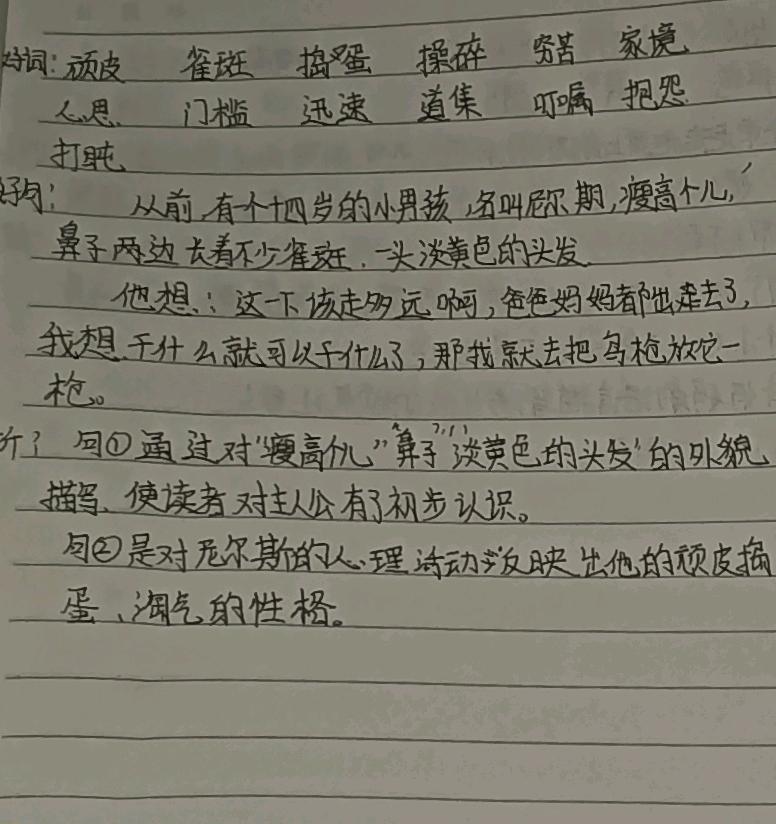 好词：顽皮 雀斑 捣蛋 操碎 穷苦 家境
心思 门槛 迅速 道集 叮嘱 抱怨
打盹
好句： 从前,有个十四岁的小男孩,名叫尼尔期,瘦高个儿,
鼻子两边长着不少雀斑.一头淡黄色的头发.
他想：这一下该走多远啊,爸爸妈妈都出走去了,
我想干什么就可以干什么了,那我就去把鸟枪放它一
枪。
析： 句①通过对“瘦高个儿”“鼻子”“淡黄色的头发”的外貌
描写、使读者对主人公有了初步认识。
句②是对尼尔斯的心理活动反映出他的顽皮捣
蛋、淘气的性格。